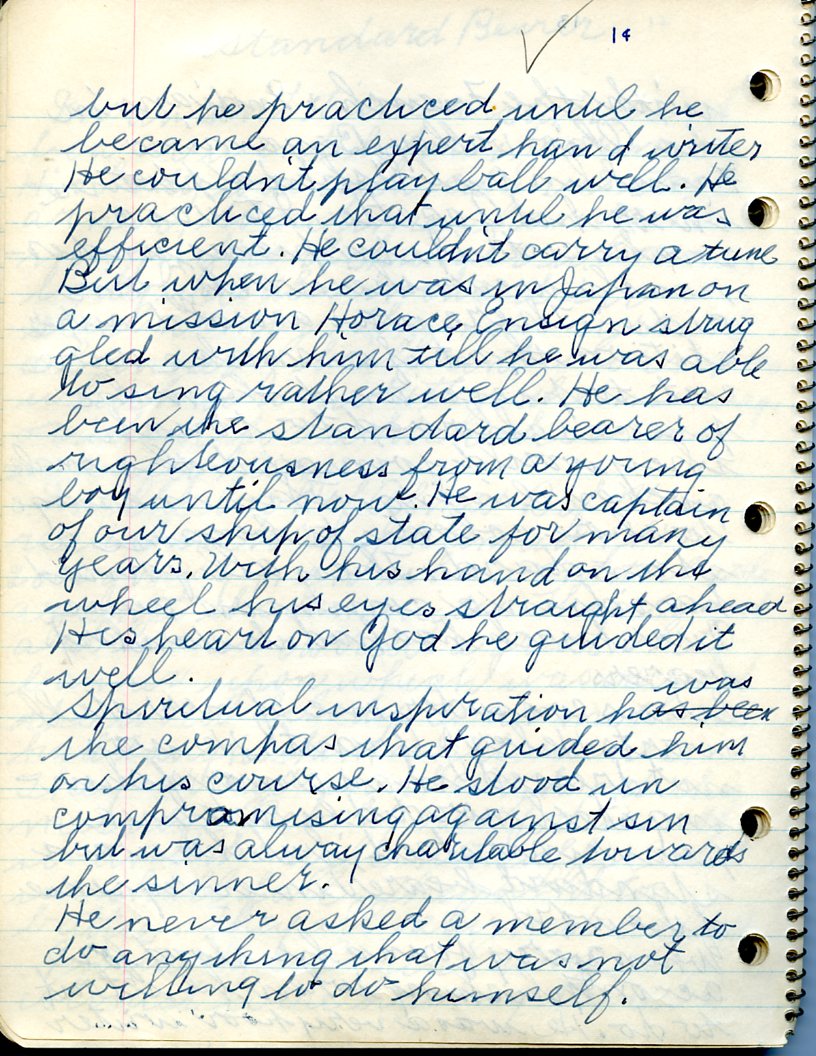 14
but he practiced until he
became an expert hand writer
He couldn't play ball well. He
practiced that until he was
efficient. He couldn't carry a tune
But when he was in Japan on
a mission Horace Ensign strug
gled with him till he was able
to sing rather well. He has
been the standard bearer of
righteousness from a young
boy until now. He was captain
of our ship of state for many
years. With his hand on the
wheel his eyes straight ahead
His heart on God he guided it
well.
was
Spiritual inspiration has been
the compas that guided him
on his course. He stood un
compromising against sin
but was alway charitable towards
the sinner.
He never asked a member to
do anything that was not
willing to do himself.